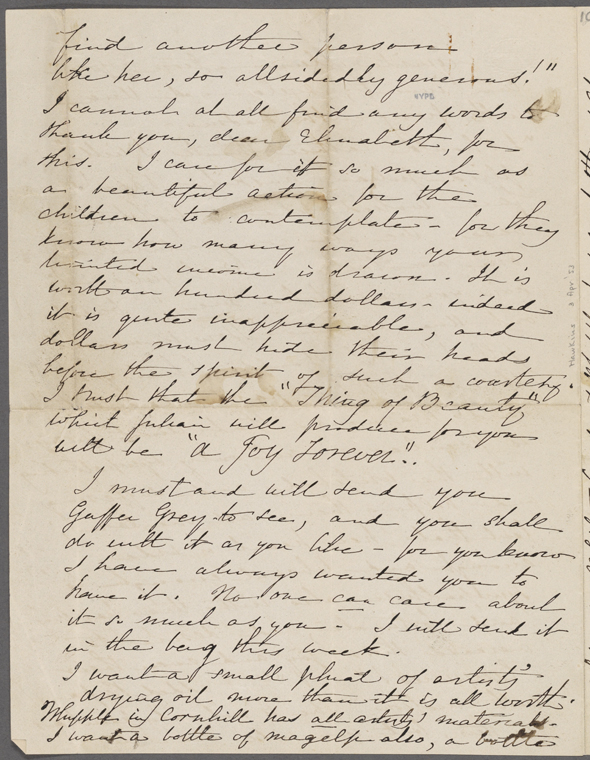 find another person
like her, so allsidedly generous!"
NYPL
I cannot at all find any words to
thank you, dear Elizabeth, for
this. I care for it so much as
a beautiful action for the
children to contemplate - for they
know how many ways your
limited income is drawn. It is
worth an hundred dollars - indeed
it is quite inappreciable, and
dollars must hide their heads
before the spirit of such a courtesy.
I trust that the "Thing of Beauty"
which Julian will produce for you
will be "a Joy Forever".
I must and will send you
Gaffer Grey to see, and you shall
do with it as you like - for you know
I have always wanted you to
have it. No one can care about
it so much as you - I will send it
in the bag this week.
I want a small phial of artists'
drying oil more than it is all worth.
Whipple in Cornhill has all artists' materials.
I want a bottle of magelp also, a bottle
Hawkins 3 Apr '53